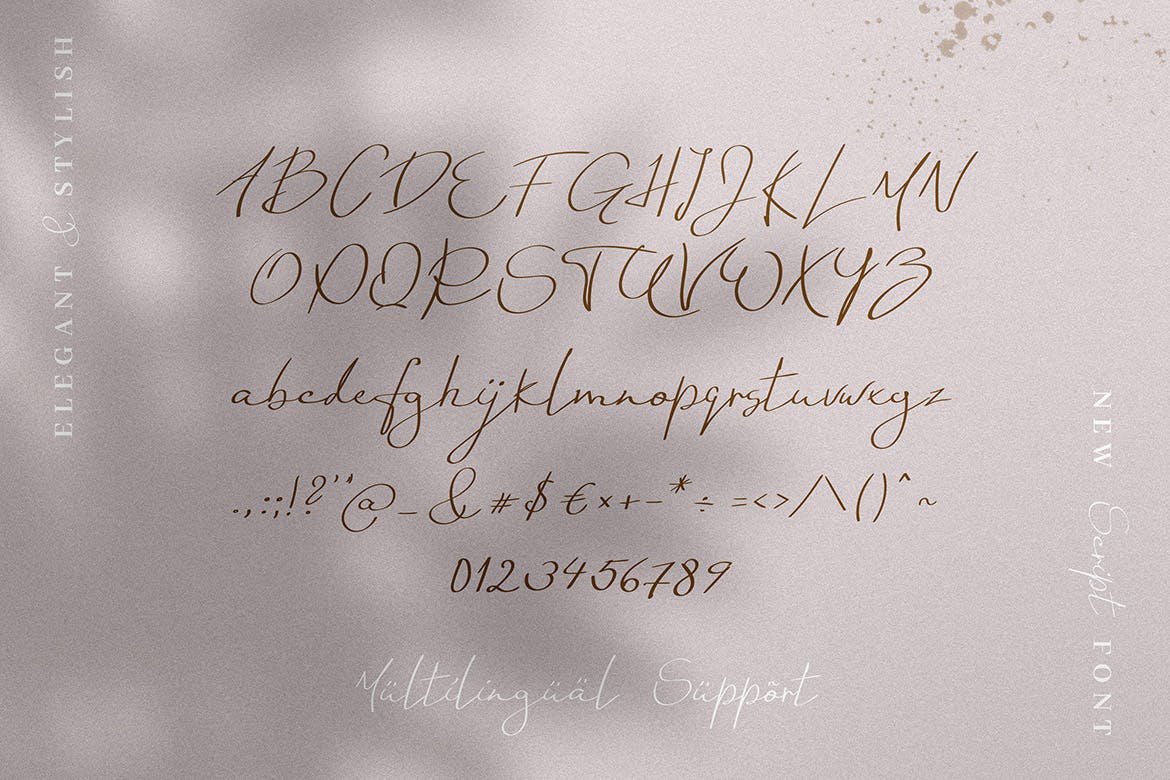 ELEGANT & STYLISH
ABCDEFGHIJKLMN
OPQRSTUVWXYZ
abcdefghijklmnopqrstuvwxyz
.,:;!?'"@_&#$€×+−*÷=<>/\()^~
0123456789
NEW Script FONT
Mültílingüäl Süppõrt